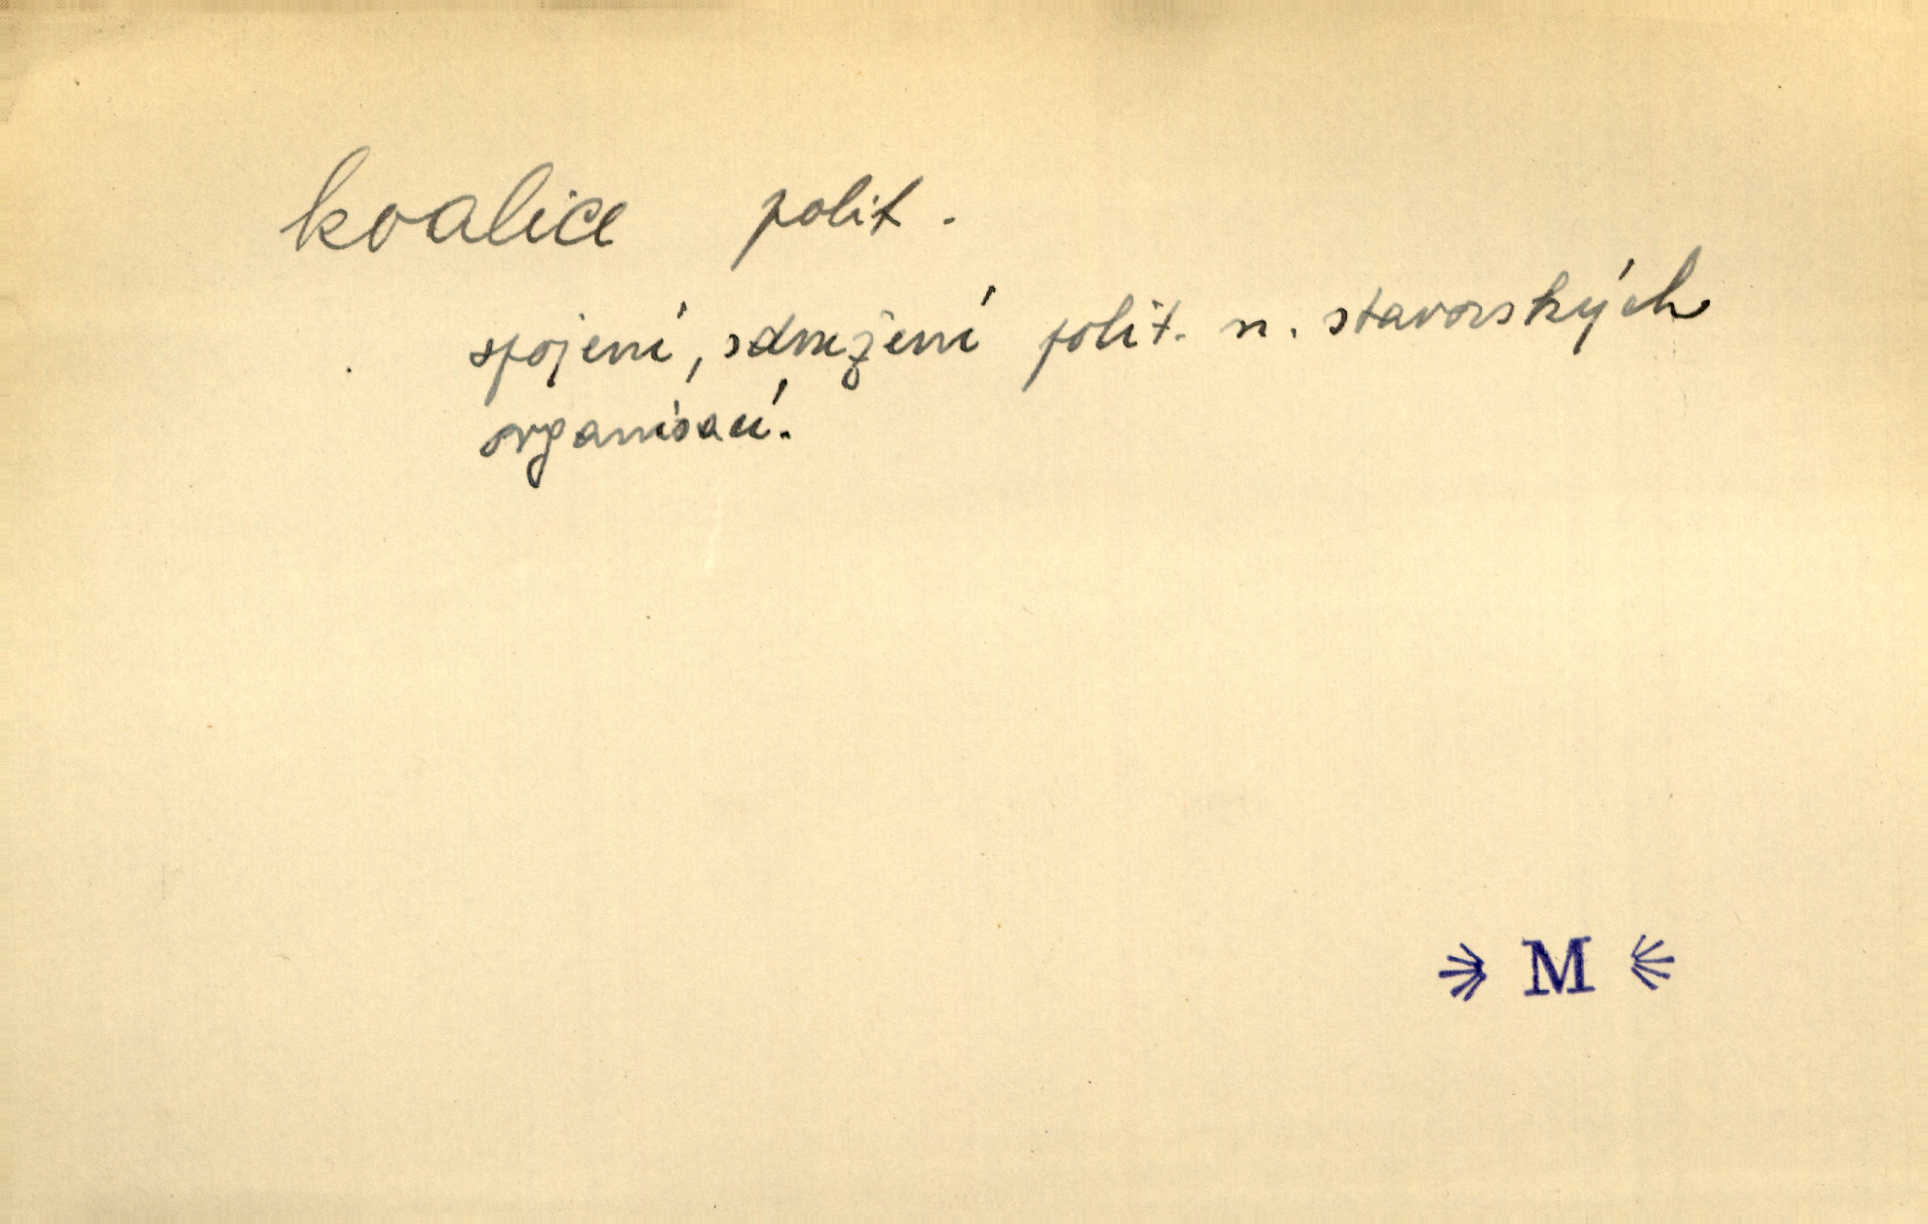 koalice polit.
spojení, sdružení polit. n. stavovských
organisací.
M